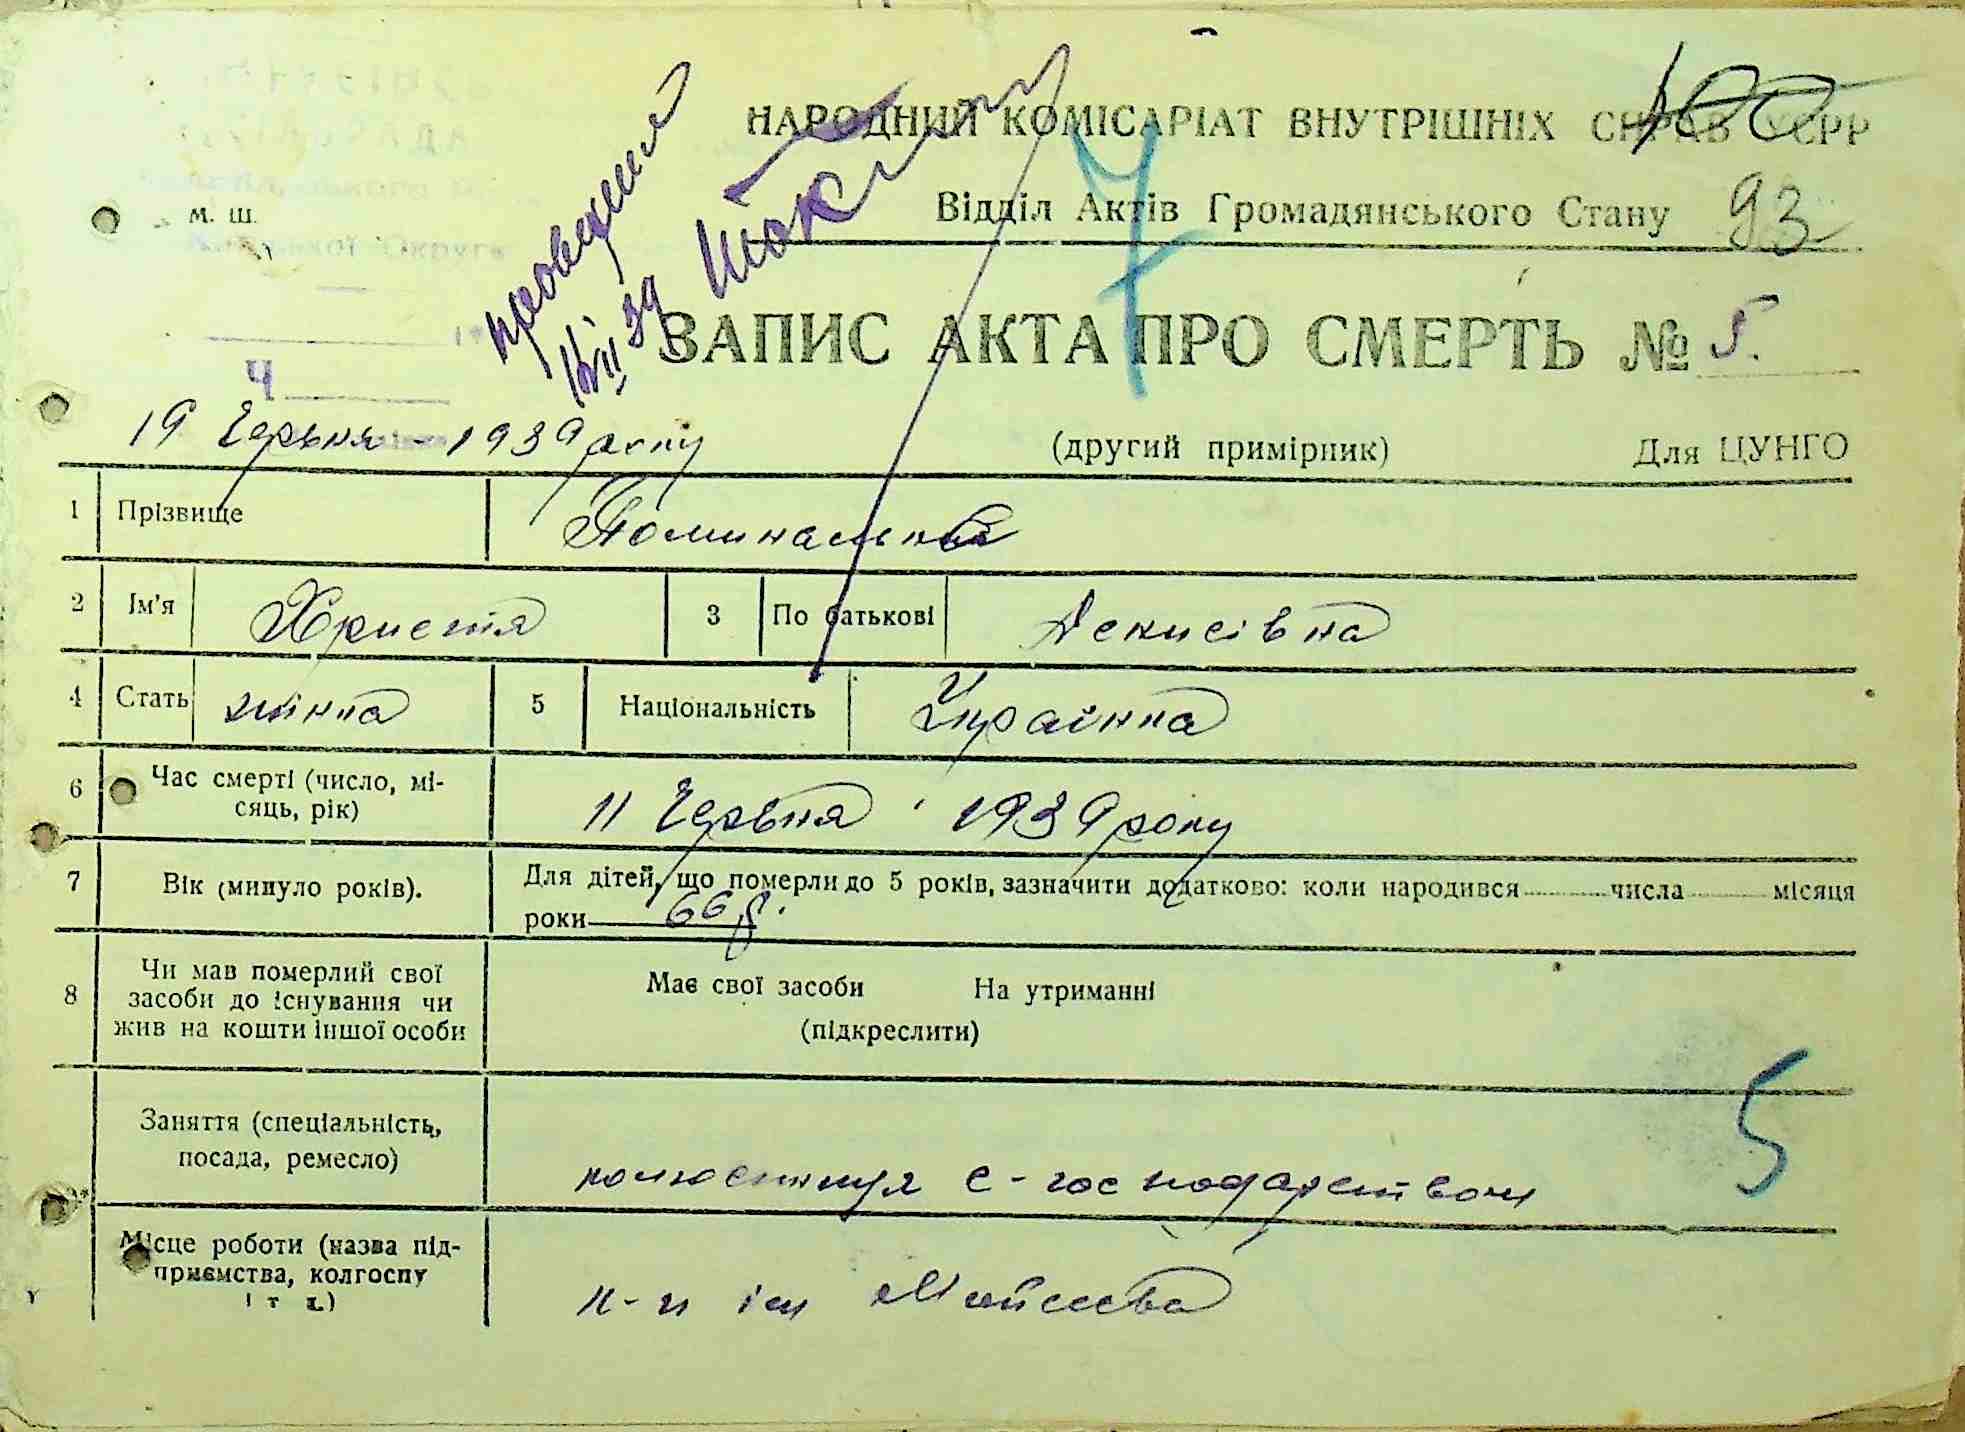 100
НАРОДНИЙ КОМІСАРІАТ ВНУТРІШНІХ СПРАВ УСРР
Відділ Актів Громадянського Стану 93
м. ш.
7
ЗАПИС АКТА ПРО СМЕРТЬ № 5.
Ч
19 Червня - 1939 року
(другий примірник) Для ЦУНГО
1 Прізвище
2 Ім'я Христя 3 По батькові
4 Стать жінка 5 Національність Українка
6 Час смерті (число, мі-
сяць, рік) 11 Червня 1939 року
7 Вік (минуло років). Для дітей, що померли до 5 років, зазначити додатково: коли народився числа місяця
роки 66 р.
8 Чи мав померлий свої
засоби до існування чи
жив на кошти іншої особи
Має свої засоби На утриманні
(підкреслити)
5
Заняття (спеціальність,
посада, ремесло)
с-господарством
Місце роботи (назва під-
приємства, колгоспу
і т. д.)
к-п ім